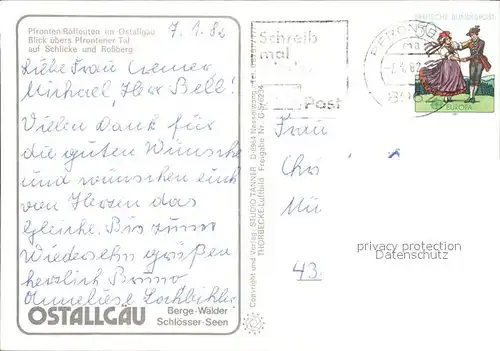 Pfronten-Röfleuten im Ostallgäu
Blick übers Pfrontener Tal
auf Schlicke und Roßberg
7.1.82
Liebe Frau Cremer
Michael, Herr Bell!
Vielen Dank für
die guten Wünsche
und wünschen euch
von Herzen das
Gleiche. Bis zum
Wiedersehn grüßen
herzlich Bruno
Anneliese
OSTALLGÄU
Berge-Wälder
Schlösser-Seen
Copyright und Verlag: STUDIO TANNER
THORBECKE-Luftbild Freigabe Nr.
Schreib
mal
Post
PFRONTEN
8962
DEUTSCHE BUNDESPOST
EUROPA
Frau
Chr
Mü
43
privacy protection
Datenschutz